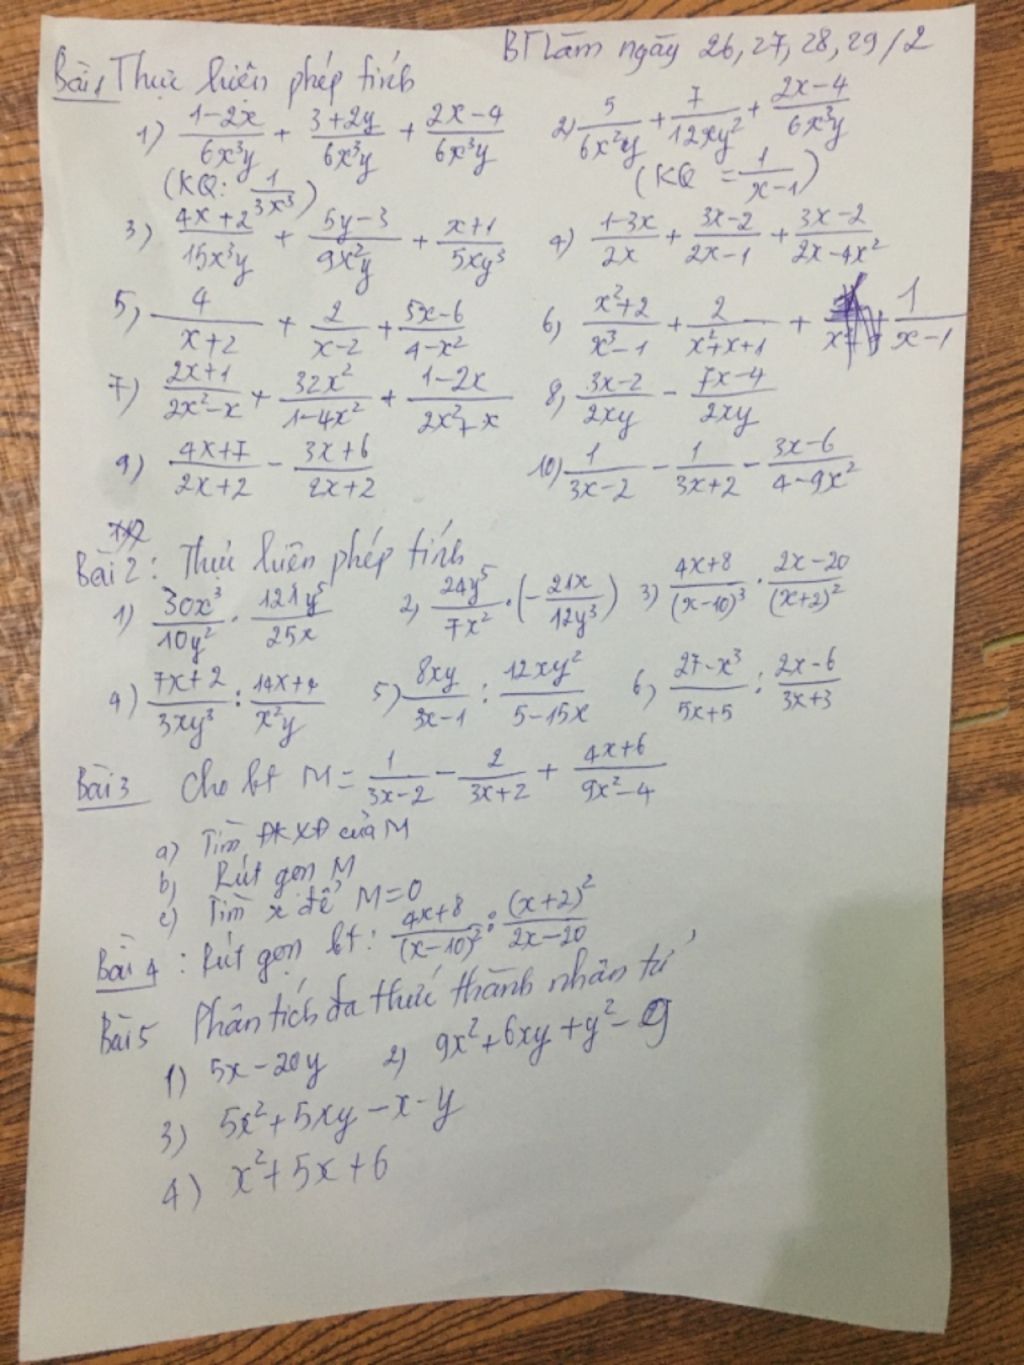 BT làm ngày 26, 27, 28, 29/2
Bài 1 Thực hiện phép tính
1) (1-2x)/(6x³y) + (3+2y)/(6x³y) + (2x-4)/(6x³y) 2) 5/(6x²y) + 7/(12xy²) + (2x-4)/(6x³y)
(KQ: 1/(3x³)) (KQ = 1/(x-1))
3) (4x+2)/(15x³y) + (5y-3)/(9x²y) + (x+1)/(5xy³) 4) (1-3x)/(2x) + (3x-2)/(2x-1) + (3x-2)/(2x-4x²)
5, 4/(x+2) + 2/(x-2) + (5x-6)/(4-x²) 6, (x²+2)/(x³-1) + 2/(x²+x+1) + 1/(x-1)
7) (2x+1)/(2x²-x) + (32x²)/(1-4x²) + (1-2x)/(2x²+x) 8, (3x-2)/(2xy) - (7x-4)/(2xy)
9) (4x+7)/(2x+2) - (3x+6)/(2x+2) 10) 1/(3x-2) - 1/(3x+2) - (3x-6)/(4-9x²)
Bài 2: Thực hiện phép tính
1) (30x³)/(10y²) . (121y⁵)/(25x) 2, (24y⁵)/(7x²) . (-(21x)/(12y³)) 3) (4x+8)/(x-10)³ . (2x-20)/(x+2)²
4) (7x+2)/(3xy³) : (14x+4)/(x²y) 5) (8xy)/(3x-1) : (12xy²)/(5-15x) 6, (27-x³)/(5x+5) : (2x-6)/(3x+3)
Bài 3 Cho bt M = 1/(3x-2) - 2/(3x+2) + (4x+6)/(9x²-4)
a) Tìm ĐKXĐ của M
b, Rút gọn M
c) Tìm x để M=0
Bài 4: Rút gọn bt: (4x+8)/(x-10)² : (x+2)²/(2x-20)
Bài 5 Phân tích đa thức thành nhân tử
1) 5x-20y 2, 9x²+6xy+y²-9
3) 5x²+5xy-x-y
4) x²+5x+6